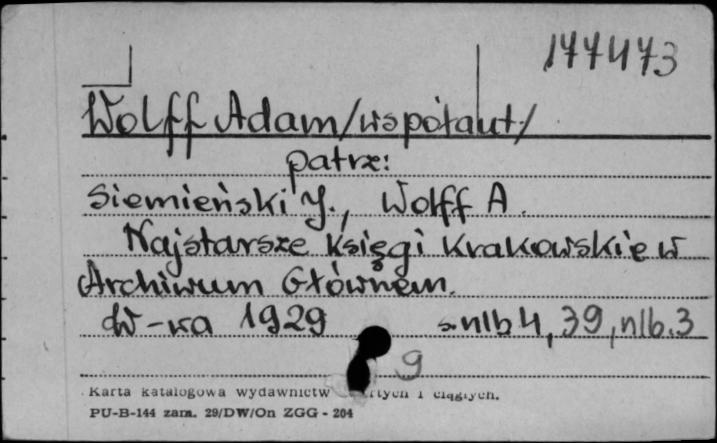 177473
Wolff Adam/współaut/
patrz:
Siemieński J., Wolff A.
Najstarsze księgi krakowskie w
Archiwum Głównem.
W-wa 1929 s. nlb 4, 39, nlb. 3
9
Karta katalogowa wydawnictw i ciągłych.
PU-B-144 zam. 29/DW/On ZGG - 204